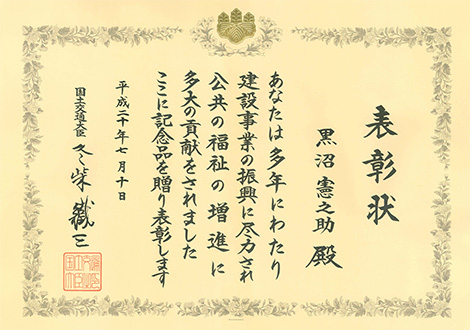 表彰状
黒沼憲之助殿
あなたは多年にわたり
建設事業の振興に尽力され
公共の福祉の増進に
多大の貢献をされました
ここに記念品を贈り表彰します
平成二十年七月十日
国土交通大臣 冬柴鐵三